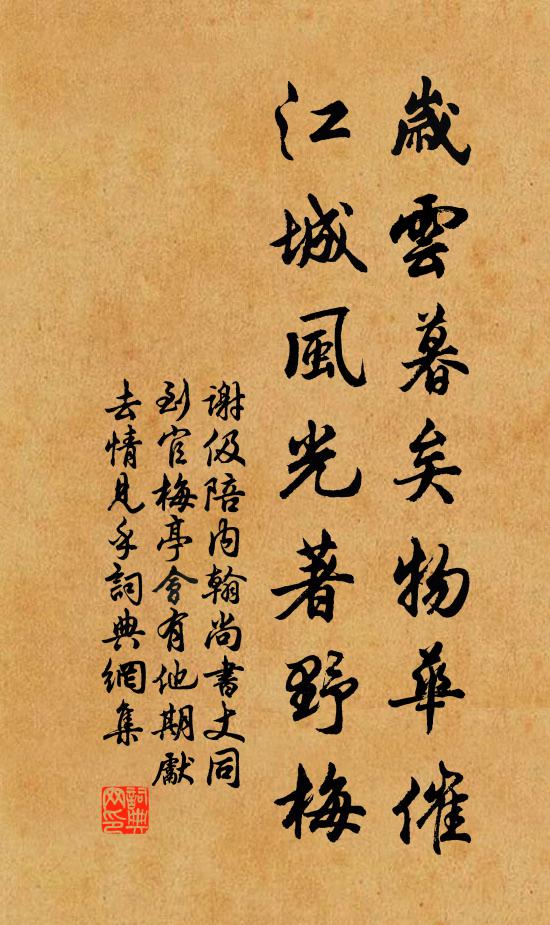 歲雲暮矣物華催
江城風光著野梅
謝伋陪內翰尚書丈同
到官梅亭會有他期獻
去情見乎詞典網集
詞典網印